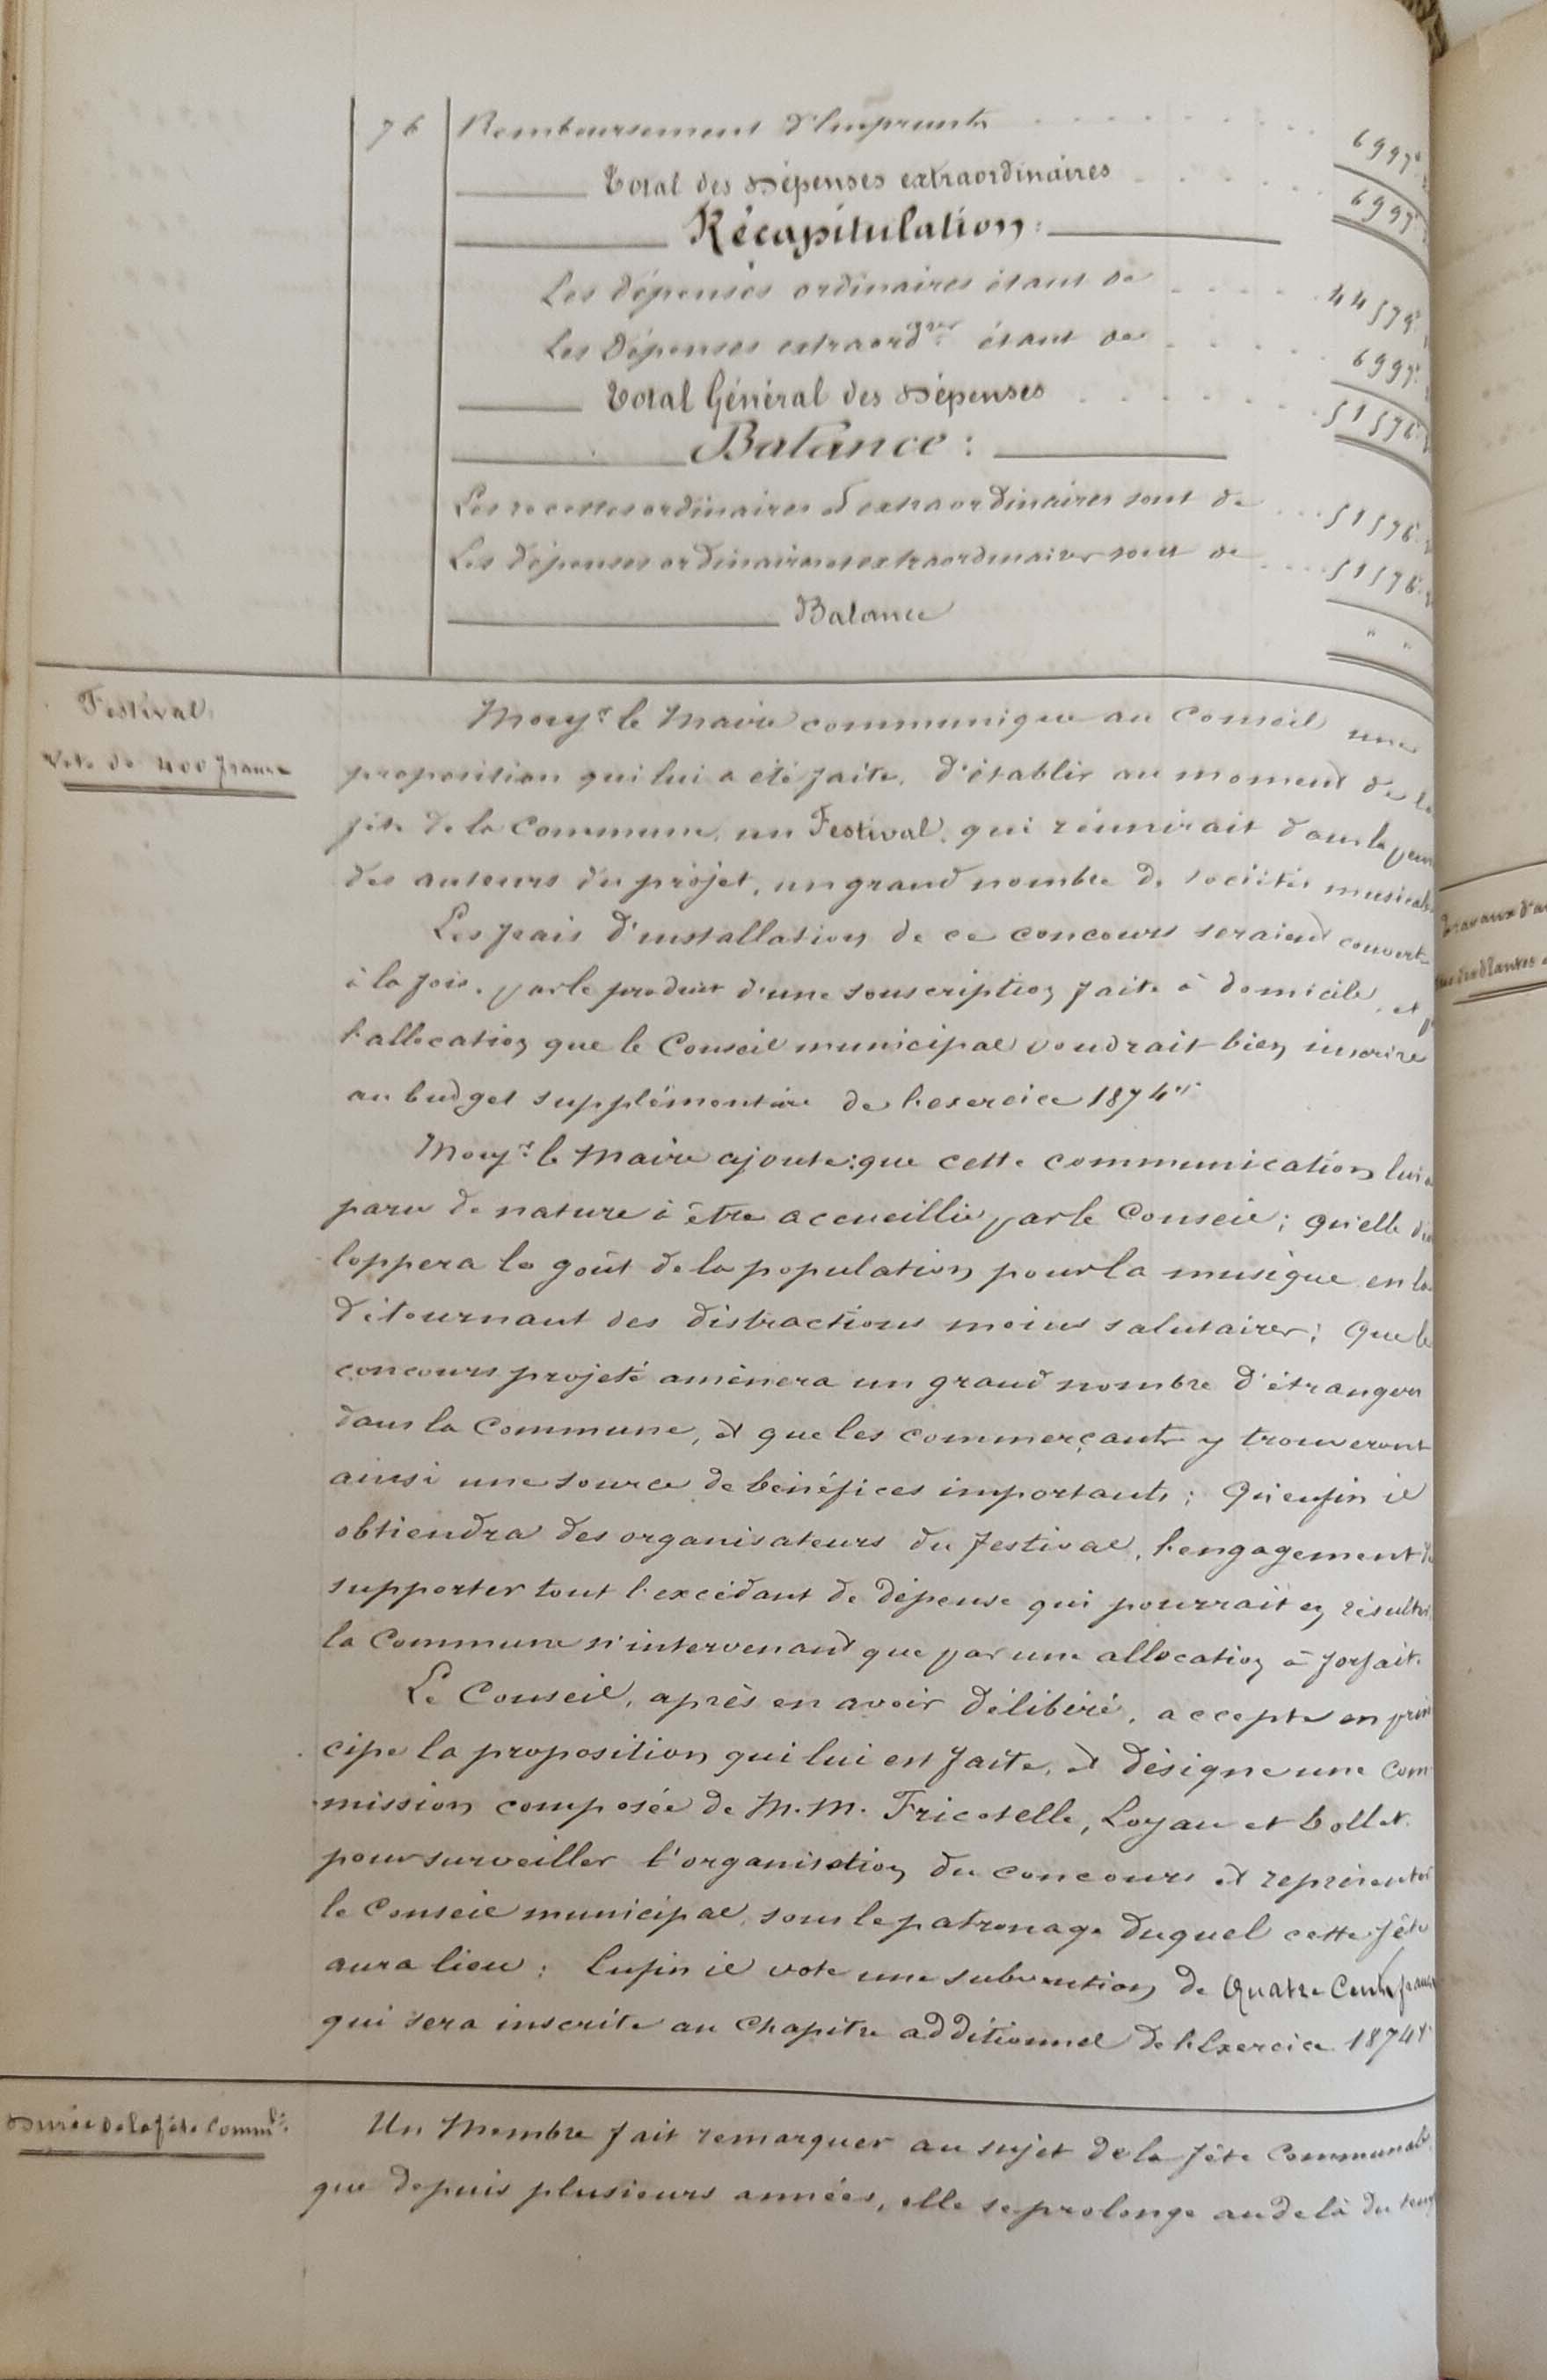 76 Remboursement d'Emprunts . . . . . . . . . 6997
Total des Dépenses extraordinaires . . . . . . 6997
Récapitulation :
Les dépenses ordinaires étant de . . . . . 44579
Les Dépenses extraord.res étant de . . . . . 6997
Total Général des Dépenses . . . . . . . 51576
Balance :
Les recettes ordinaires et extraordinaires sont de . . . 51576
Les dépenses ordinaires et extraordinaires sont de . . . . 51576
Balance " "
Festival.
Vote de 400 francs
Mons.r le Maire communique au Conseil une
proposition qui lui a été faite, d'établir au moment de la
fête de la Commune, un Festival, qui réunirait dans la
des auteurs du projet, un grand nombre de sociétés musicales
Les frais d'installation de ce concours seraient couverts
à la fois, par le produit d'une souscription faite à domicile, et
l'allocation que le Conseil municipal voudrait bien inscrire
au budget supplémentaire de l'exercice 1874
Mons.r le Maire ajoute : que cette communication lui a
paru de nature à être accueillie par le Conseil ; qu'elle
loppera le goût de la population pour la musique en la
détournant des distractions moins salutaires ; Que le
concours projeté amènera un grand nombre d'étrangers
dans la Commune, et que les commerçants y trouveront
ainsi une source de bénéfices importants ; Qu'enfin il
obtiendra des organisateurs du festival, l'engagement de
supporter tout l'excédant de dépense qui pourrait en résulter
la Commune n'intervenant que par une allocation à forfait.
Le Conseil, après en avoir délibéré, accepte en prin
cipe la proposition qui lui est faite, et désigne une Com
mission composée de M.M. Fricotelle, Loyau et Collet
pour surveiller l'organisation du concours et représenter
le Conseil municipal, sous le patronage duquel cette fête
aura lieu ; Enfin il vote une subvention de Quatre Cents francs
qui sera inscrite au Chapitre additionnel de l'Exercice 1874
Durée de la fête Comm.le
Un Membre fait remarquer au sujet de la fête Communale,
que depuis plusieurs années, elle se prolonge au delà du
Travaux d'